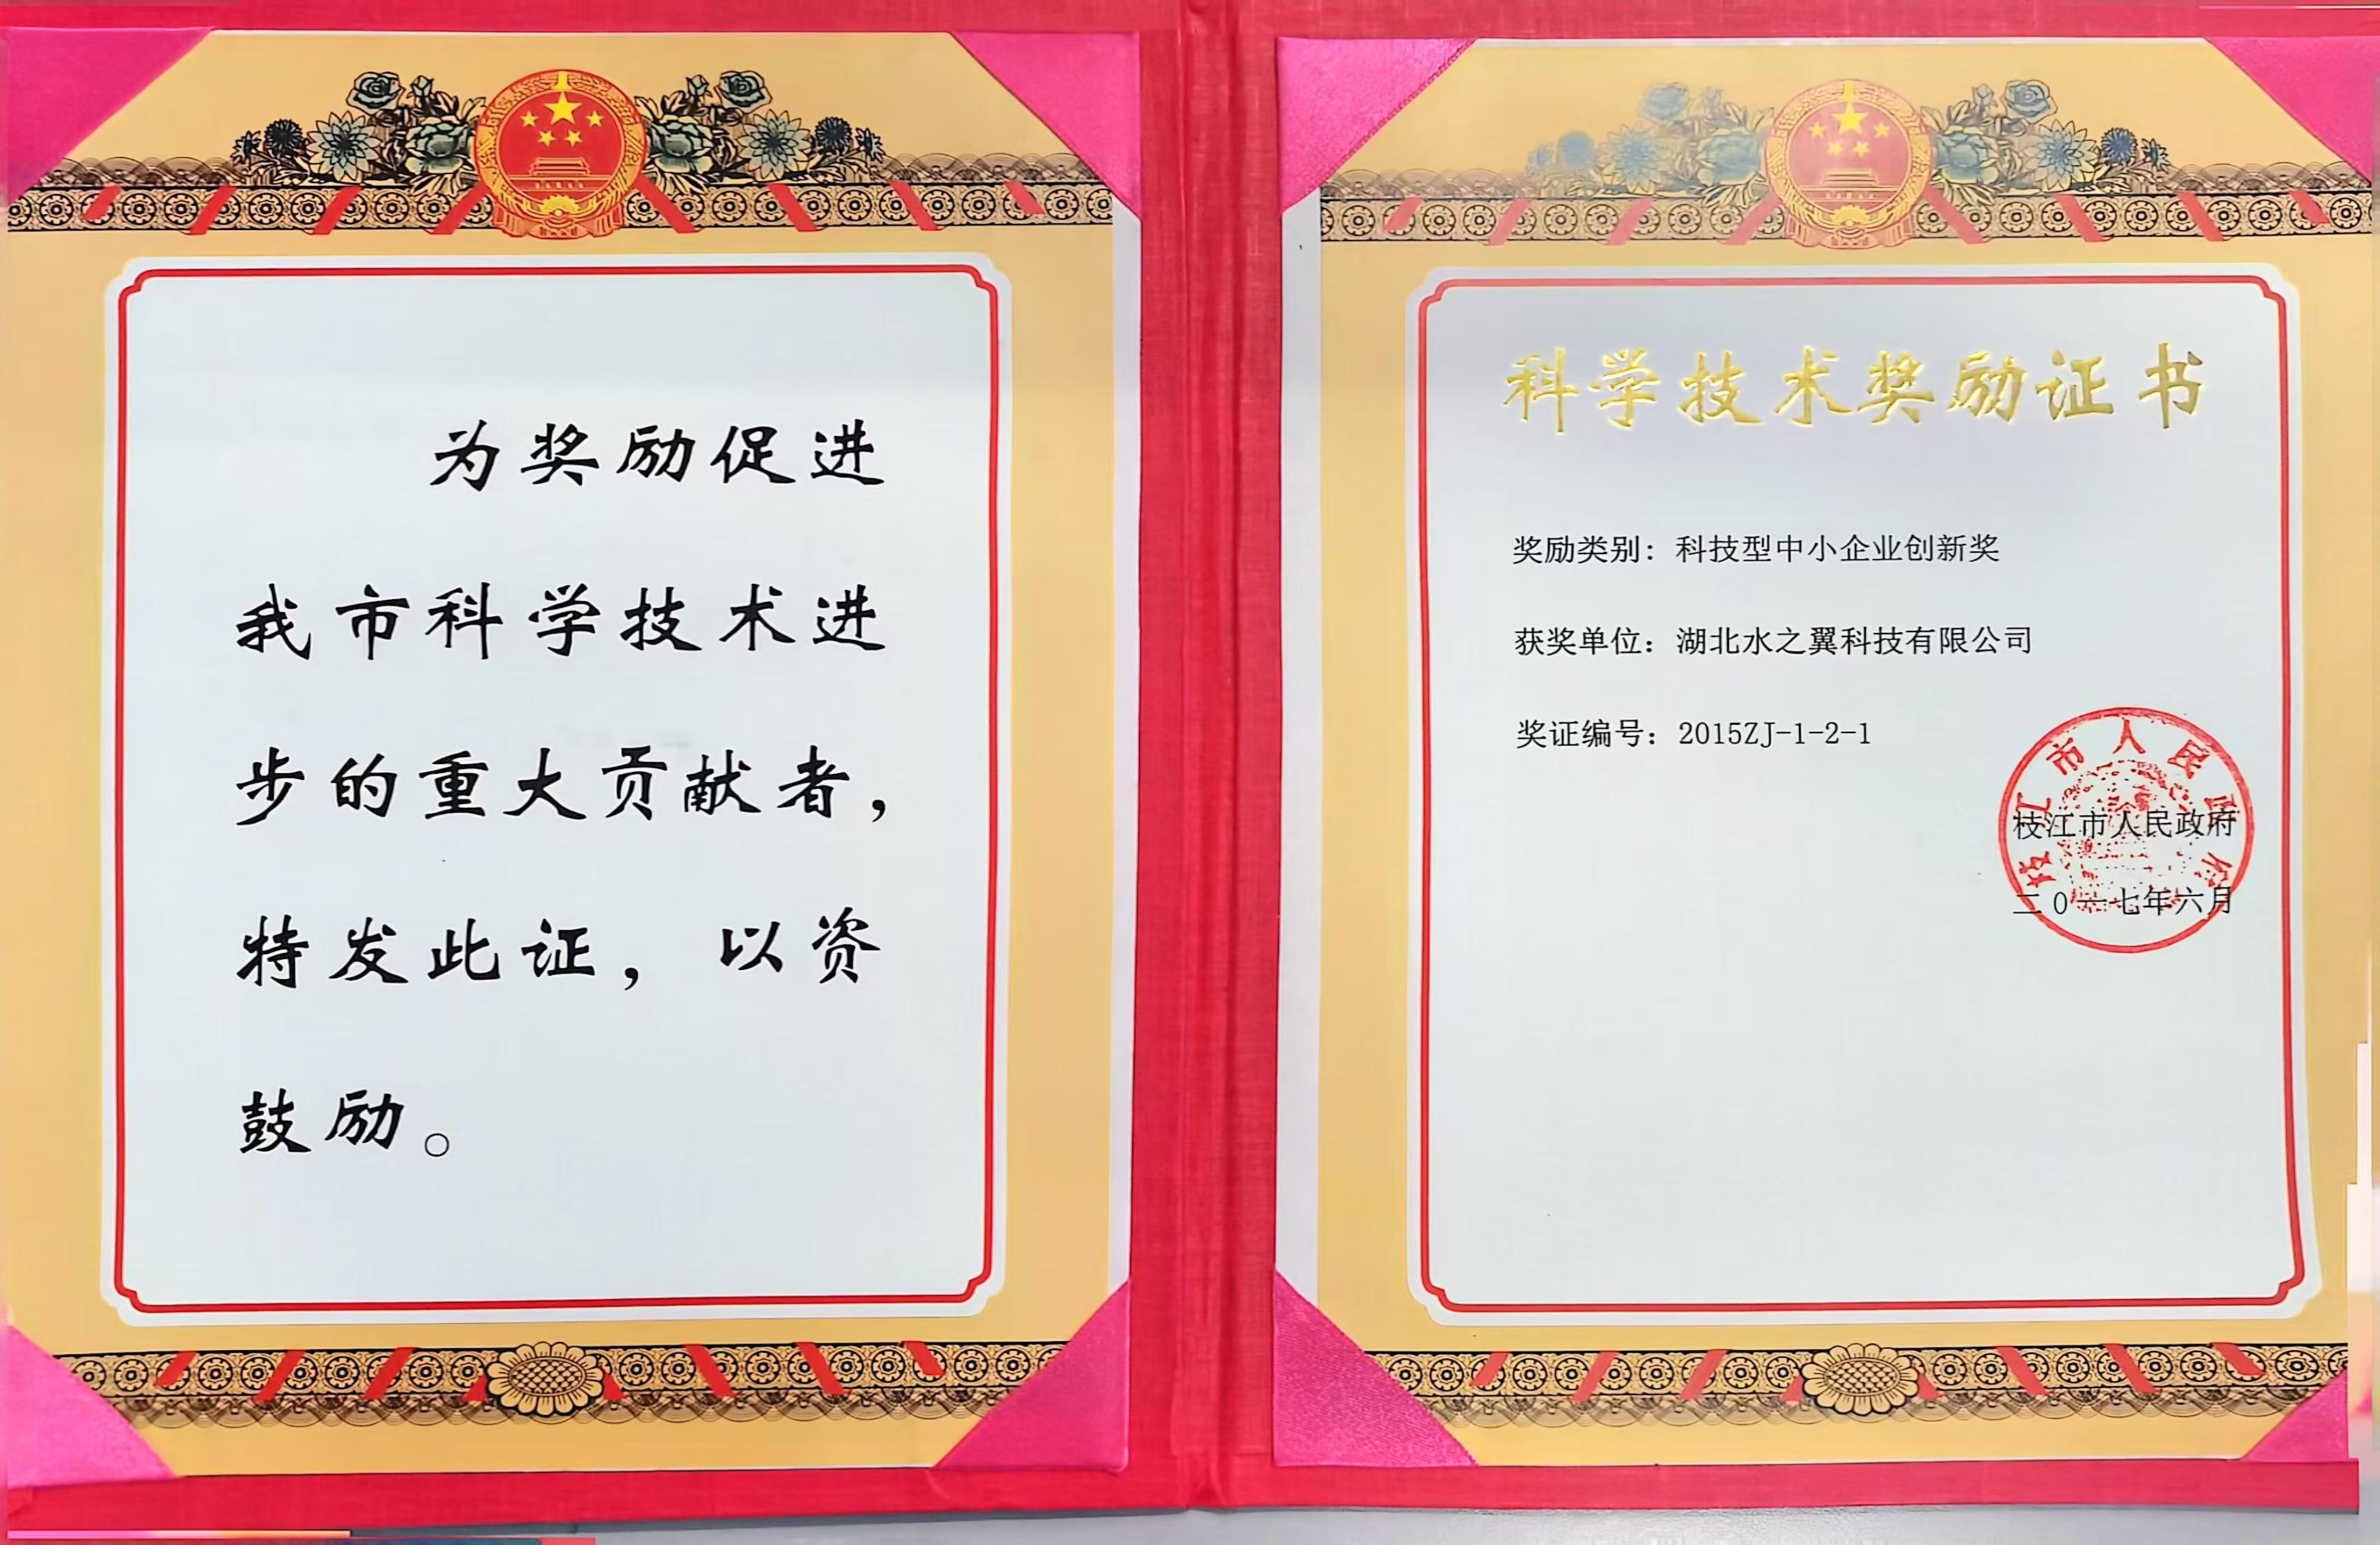 为奖励促进
我市科学技术进
步的重大贡献者，
特发此证，以资
鼓励。
科学技术奖励证书
奖励类别：科技型中小企业创新奖
获奖单位：湖北水之翼科技有限公司
奖证编号：2015ZJ-1-2-1
枝江市人民政府
枝江市人民政府
二0一七年六月